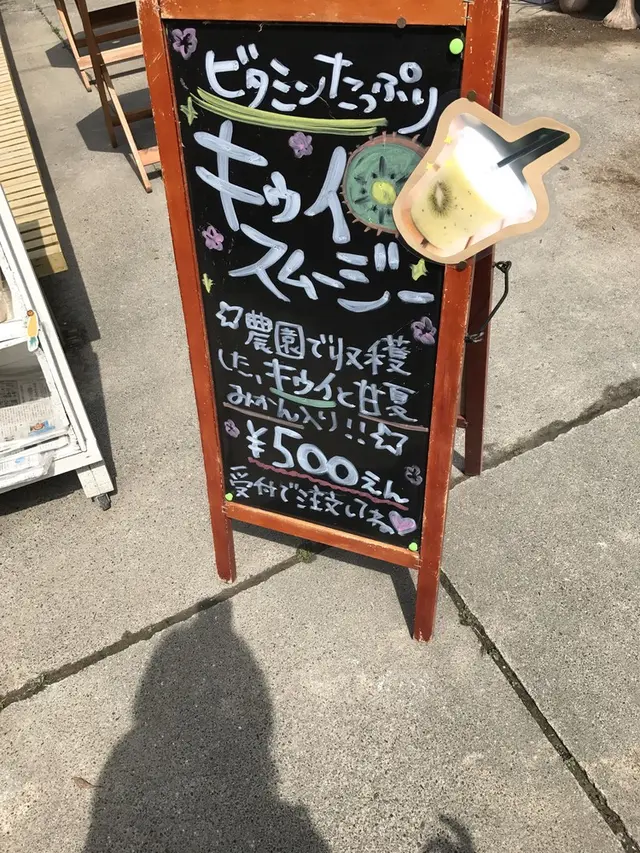 ビタミンたっぷり
キウイ
スムージー
☆農園で収穫
した、キウイと甘夏
みかん入り!!☆
¥500えん
受付で注文してね♡